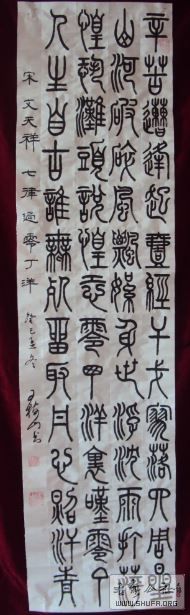 辛苦遭逢起壹經干戈寥落四周星
山河破碎風飄絮身世浮沈雨打萍
惶恐灘頭說惶恐零丁洋裏嘆零丁
人生自古誰無死留取丹心照汗青
宋文天祥七律過零丁洋癸巳
WWW.SHUFR.ORG